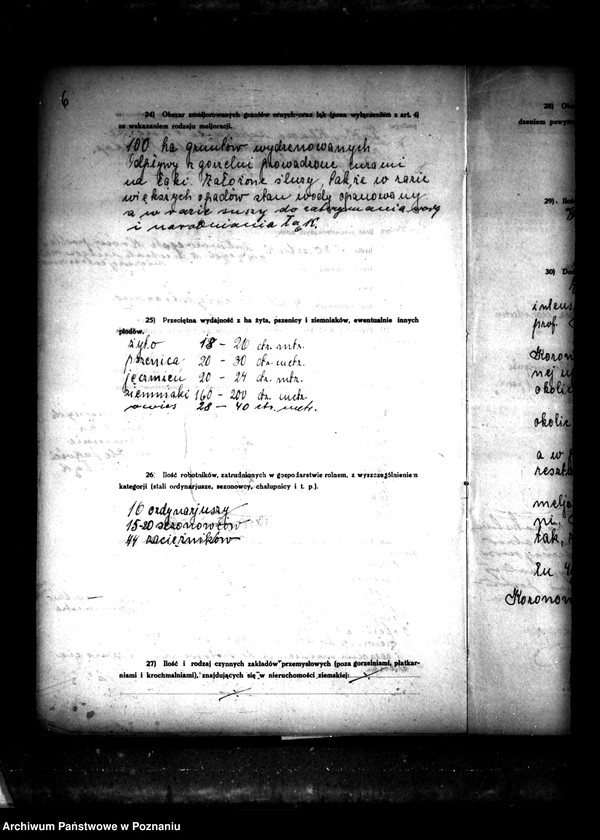 6
24) Obszar zmeljorowanych gruntów ornych oraz łąk (poza wyłączeniem z art. 4)
ze wskazaniem rodzaju meljoracji.
100 ha gruntów wydrenowanych
odpływy z gorzelni prowadzone rurami
na łąki. Założone śluzy, także w razie
większych opadów stan wody opanowany
a w razie suszy do zatrzymania wody
i nawodniania łąk.
25) Przeciętna wydajność z ha żyta, pszenicy i ziemniaków, ewentualnie innych
płodów.
żyto 18 - 20 ctr. mtr.
pszenica 20 - 30 ctr. metr.
jęczmień 20 - 24 ctr. mtr.
ziemniaki 160 - 200 ctr. metr
owies 28 - 40 ctr. metr.
26) Ilość robotników, zatrudnionych w gospodarstwie rolnem, z wyszczególnieniem
kategorji (stali ordynarjusze, sezonowcy, chałupnicy i t. p.).
16 ordynarjuszy
15-20 sezonowców
44 zaciężników
27) Ilość i rodzaj czynnych zakładów przemysłowych (poza gorzelniami, płatkar-
niami i krochmalniami), znajdujących się w nieruchomości ziemskiej:
28) Obs
dzeniem powyż
29) Iloś
30) Dod
intens
prof.
Koron
nej
okolic
okolic
a w
reszt
meljo
tak,
Koronow
Archiwum Państwowe w Poznaniu